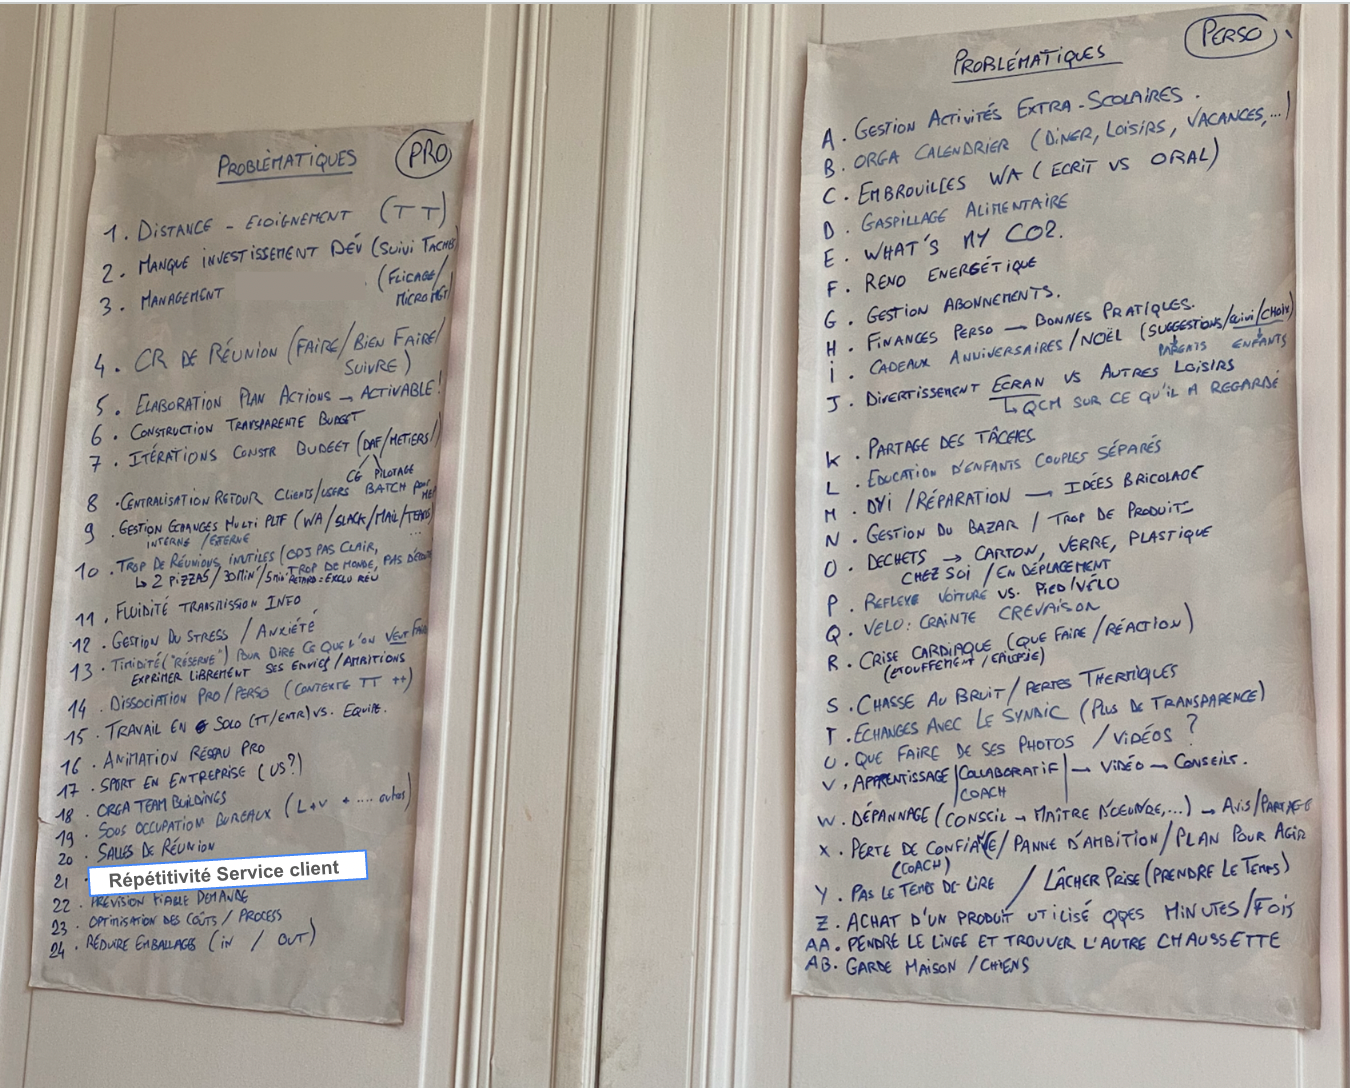 PROBLÈMATIQUES PRO
1. DISTANCE - ELOIGNEMENT (TT)
2. MANQUE INVESTISSEMENT DÉV (SUIVI TACHES)
3. MANAGEMENT (FLICAGE/
MICROMGT)
4. CR DE RÉUNION (FAIRE/BIEN FAIRE/
SUIVRE)
5. ELABORATION PLAN ACTIONS → ACTIVABLE!
6. CONSTRUCTION TRANSPARENTE BUDGET
7. ITÉRATIONS CONSTR BUDGET (DAF/METIERS/
CG PILOTAGE
8. CENTRALISATION RETOUR CLIENTS/USERS BATCH POUR
MEP
9. GESTION ÉCHANGES MULTI PLTF (WA/SLACK/MAIL/TEAMS
INTERNE / EXTERNE ...
10. TROP DE RÉUNIONS, INUTILES (ODJ PAS CLAIR,
TROP DE MONDE, PAS
↳ 2 PIZZAS / 30MIN / 5MIN RETARD = EXCLU RÉU
11. FLUIDITÉ TRANSMISSION INFO
12. GESTION DU STRESS / ANXIÉTÉ
13. TIMIDITÉ ("RÉSERVE") POUR DIRE CE QUE L'ON VEUT FAIRE
EXPRIMER LIBREMENT SES ENVIES / AMBITIONS
14. DISSOCIATION PRO/PERSO (CONTEXTE TT ++)
15. TRAVAIL EN SOLO (TT/ENTR) VS. EQUIPE.
16. ANIMATION RÉSEAU PRO
17. SPORT EN ENTREPRISE (US?)
18. ORGA TEAM BUILDINGS
19. SOUS OCCUPATION BUREAUX (L+V + .... autres)
20. SALLES DE RÉUNION
21. Répétitivité Service client
22. PRÉVISION FIABLE DEMANDE
23. OPTIMISATION DES COÛTS / PROCESS
24. RÉDUIRE EMBALLAGES (IN / OUT)
PROBLÉMATIQUES PERSO
A. GESTION ACTIVITÉS EXTRA-SCOLAIRES.
B. ORGA CALENDRIER (DÎNER, LOISIRS, VACANCES,...)
C. EMBROUILLES WA (ECRIT VS ORAL)
D. GASPILLAGE ALIMENTAIRE
E. WHAT'S MY CO2.
F. RENO ENERGÉTIQUE
G. GESTION ABONNEMENTS.
H. FINANCES PERSO → BONNES PRATIQUES.
I. CADEAUX ANNIVERSAIRES/NOËL (SUGGESTIONS/SUIVI/CHOIX)
PARENTS ENFANTS
J. DIVERTISSEMENT ECRAN VS AUTRES LOISIRS
↳ QCM SUR CE QU'IL A REGARDÉ
K. PARTAGE DES TÂCHES
L. EDUCATION D'ENFANTS COUPLES SÉPARÉS
M. DYI / RÉPARATION → IDÉES BRICOLAGE
N. GESTION DU BAZAR / TROP DE PRODUITS
O. DECHETS → CARTON, VERRE, PLASTIQUE
CHEZ SOI / EN DÉPLACEMENT
P. REFLEXE VOITURE VS. PIED/VÉLO
Q. VELO: CRAINTE CREVAISON
R. CRISE CARDIAQUE (QUE FAIRE / RÉACTION)
(ETOUFFEMENT / EPILEPSIE)
S. CHASSE AU BRUIT / PERTES THERMIQUES
T. ECHANGES AVEC LE SYNDIC (PLUS DE TRANSPARENCE)
U. QUE FAIRE DE SES PHOTOS / VIDÉOS ?
V. APPRENTISSAGE |COLLABORATIF| → VIDÉO → CONSEILS.
COACH
W. DÉPANNAGE (CONSEIL → MAÎTRE D'OEUVRE,...) → AVIS/PARTAGE
X. PERTE DE CONFIANCE / PANNE D'AMBITION / PLAN POUR AGIR
(COACH)
Y. PAS LE TEMPS DE LIRE / LÂCHER PRISE (PRENDRE LE TEMPS)
Z. ACHAT D'UN PRODUIT UTILISÉ QQES MINUTES/FOIS
AA. PENDRE LE LINGE ET TROUVER L'AUTRE CHAUSSETTE
AB. GARDE MAISON / CHIENS